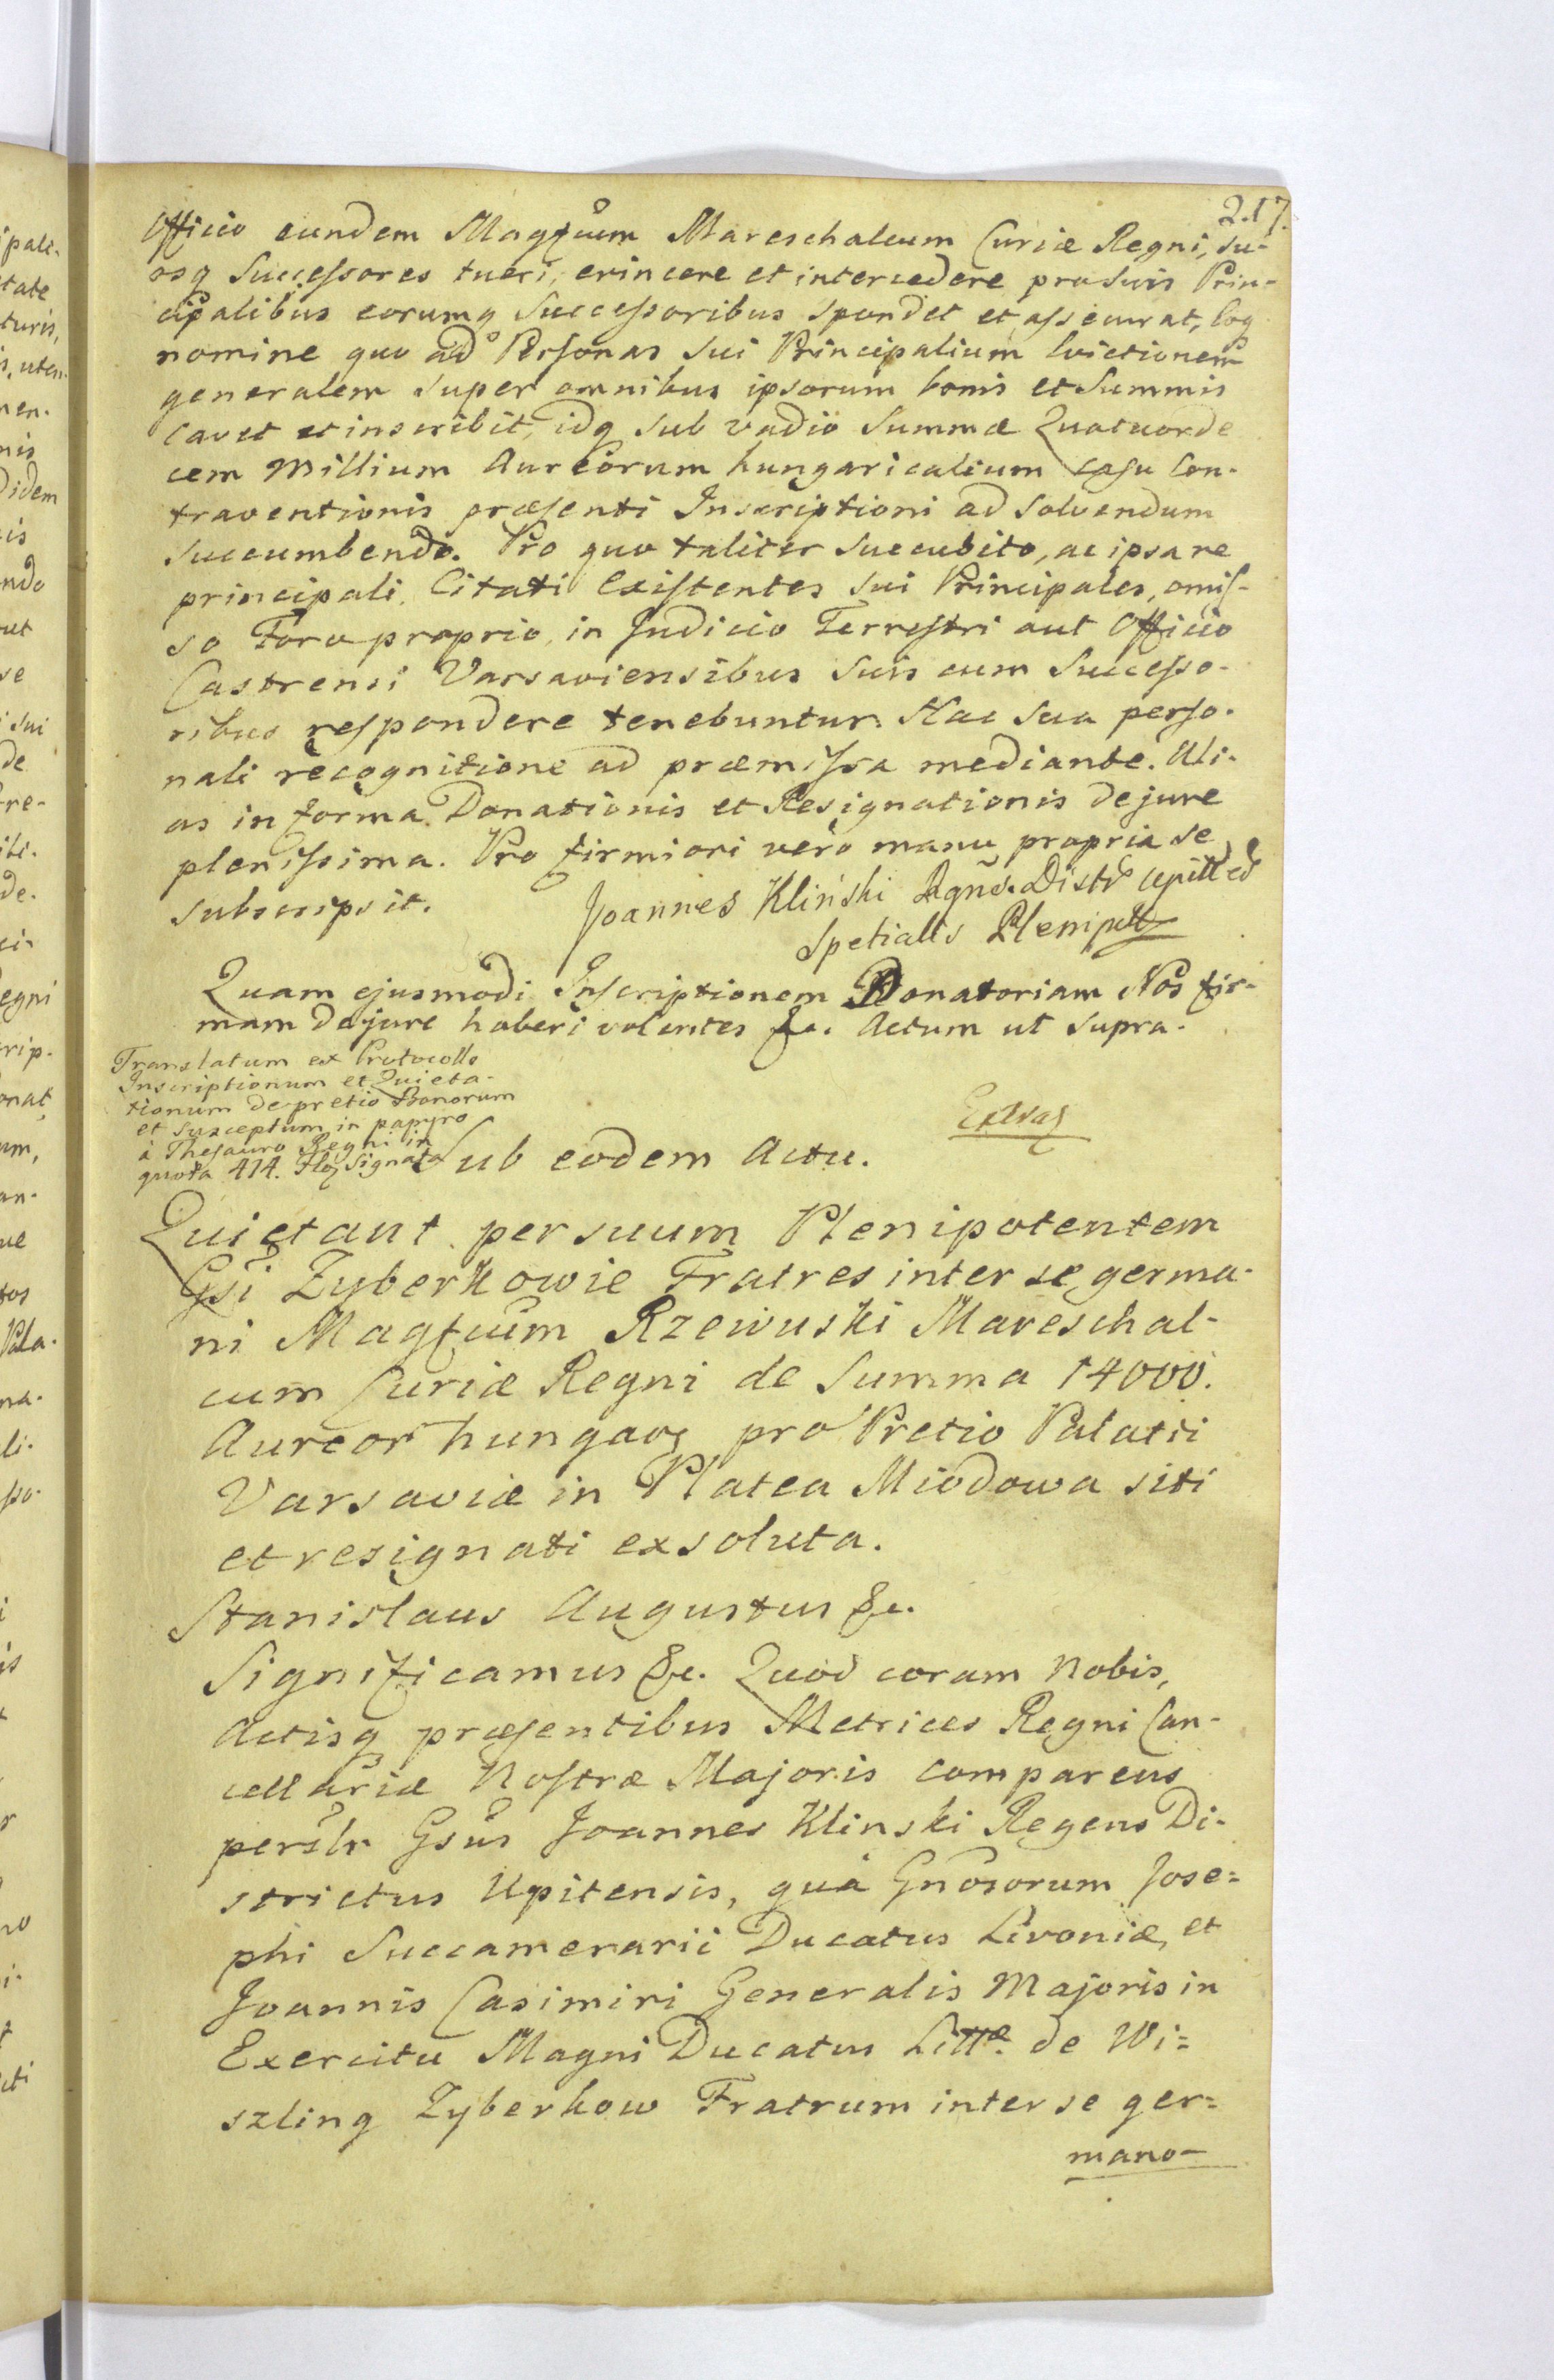 217.
Officio eundem Magfcum Mareschalcum Curiæ Regni, su-
osq Successores tueri, evincere et intercedere pro suis Prin-
cipalibus eorumq Successoribus spondet et assecurat, Eoq
nomine quo ad Personas sui Principalium Evictionem
generalem super omnibus ipsorum bonis et Summis
cavet et inscribit, idq sub vadio Summæ Quatuorde
cem Millium Aureorum hungaricalium casu Con-
traventionis præsenti Inscriptioni ad solvendum
succumbendo. Pro quo taliter succubito, ac ipsa re
principali. Citati Existentes sui Principales, omis-
so Foro proprio, in Judicio Terrestri aut Officio
Castrensi Varsaviensibus suis cum Successo-
ribus respondere tenebuntur. Hac sua perso-
nali recognitione ad præmissa mediante. Ali-
as in forma Donationis et Resignationis de jure
plenissima. Pro firmiori vero manu propria se
subscripsit.
Joannes Kliński Rgns. Distr.
Spetialis Plenipott
Quam ejusmodi Inscriptionem Donatoriam Nos fir-
mam de jure haberi volentes &c. Actum ut supra.
Translatum ex Protocollo
Inscriptionum et Quieta-
tionum de pretio Bonorum
et susceptum in papyro
à Thesauro Regni in
quota 414. Flo Signata
Sub eodem Actu.
Quietant per suum Plenipotentem
Gsi Zyberkowie Fratres inter se germa-
ni Magfcum Rzewuski Mareschal-
cum Curiæ Regni de Summa 14000.
Aureor hungar pro Pretio Palatii
Varsaviæ in Platea Miodowa siti
et resignati exsoluta.
Stanislaus Augustus &c.
Significamus &c. Quod coram Nobis,
Actisq præsentibus Metrices Regni Can-
cellariæ Nostræ Majoris comparens
persltr Gsus Joannes Klinski Regens Di-
strictus Upitensis, quà Gnosorum Jose=
phi Succamerarii Ducatus Livoniæ, et
Joannis Casimiri Generalis Majoris in
Exercitu Magni Ducatus Littæ. de Wi=
szling Zyberkow Fratrum inter se ger=
mano-